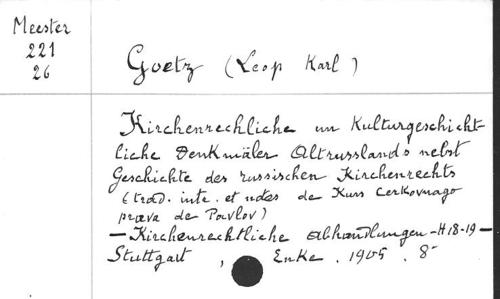 Meester
221
26
Goetz (Leop Karl)
Kirchenrechliche un Kulturgeschicht-
liche Denkmäler Altrusslands nebst
Geschichte des russischen Kirchenrechts
(trad. intr. et notes de Kurs Cerkovnago
prava de Pavlov)
— Kirchenrechtliche Abhandlungen — H 18-19 —
Stuttgart, Enke. 1905. 8°